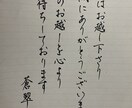 はお越し下さり
にありがとうございま
のお越しを心より
待ちしております
蒼翠